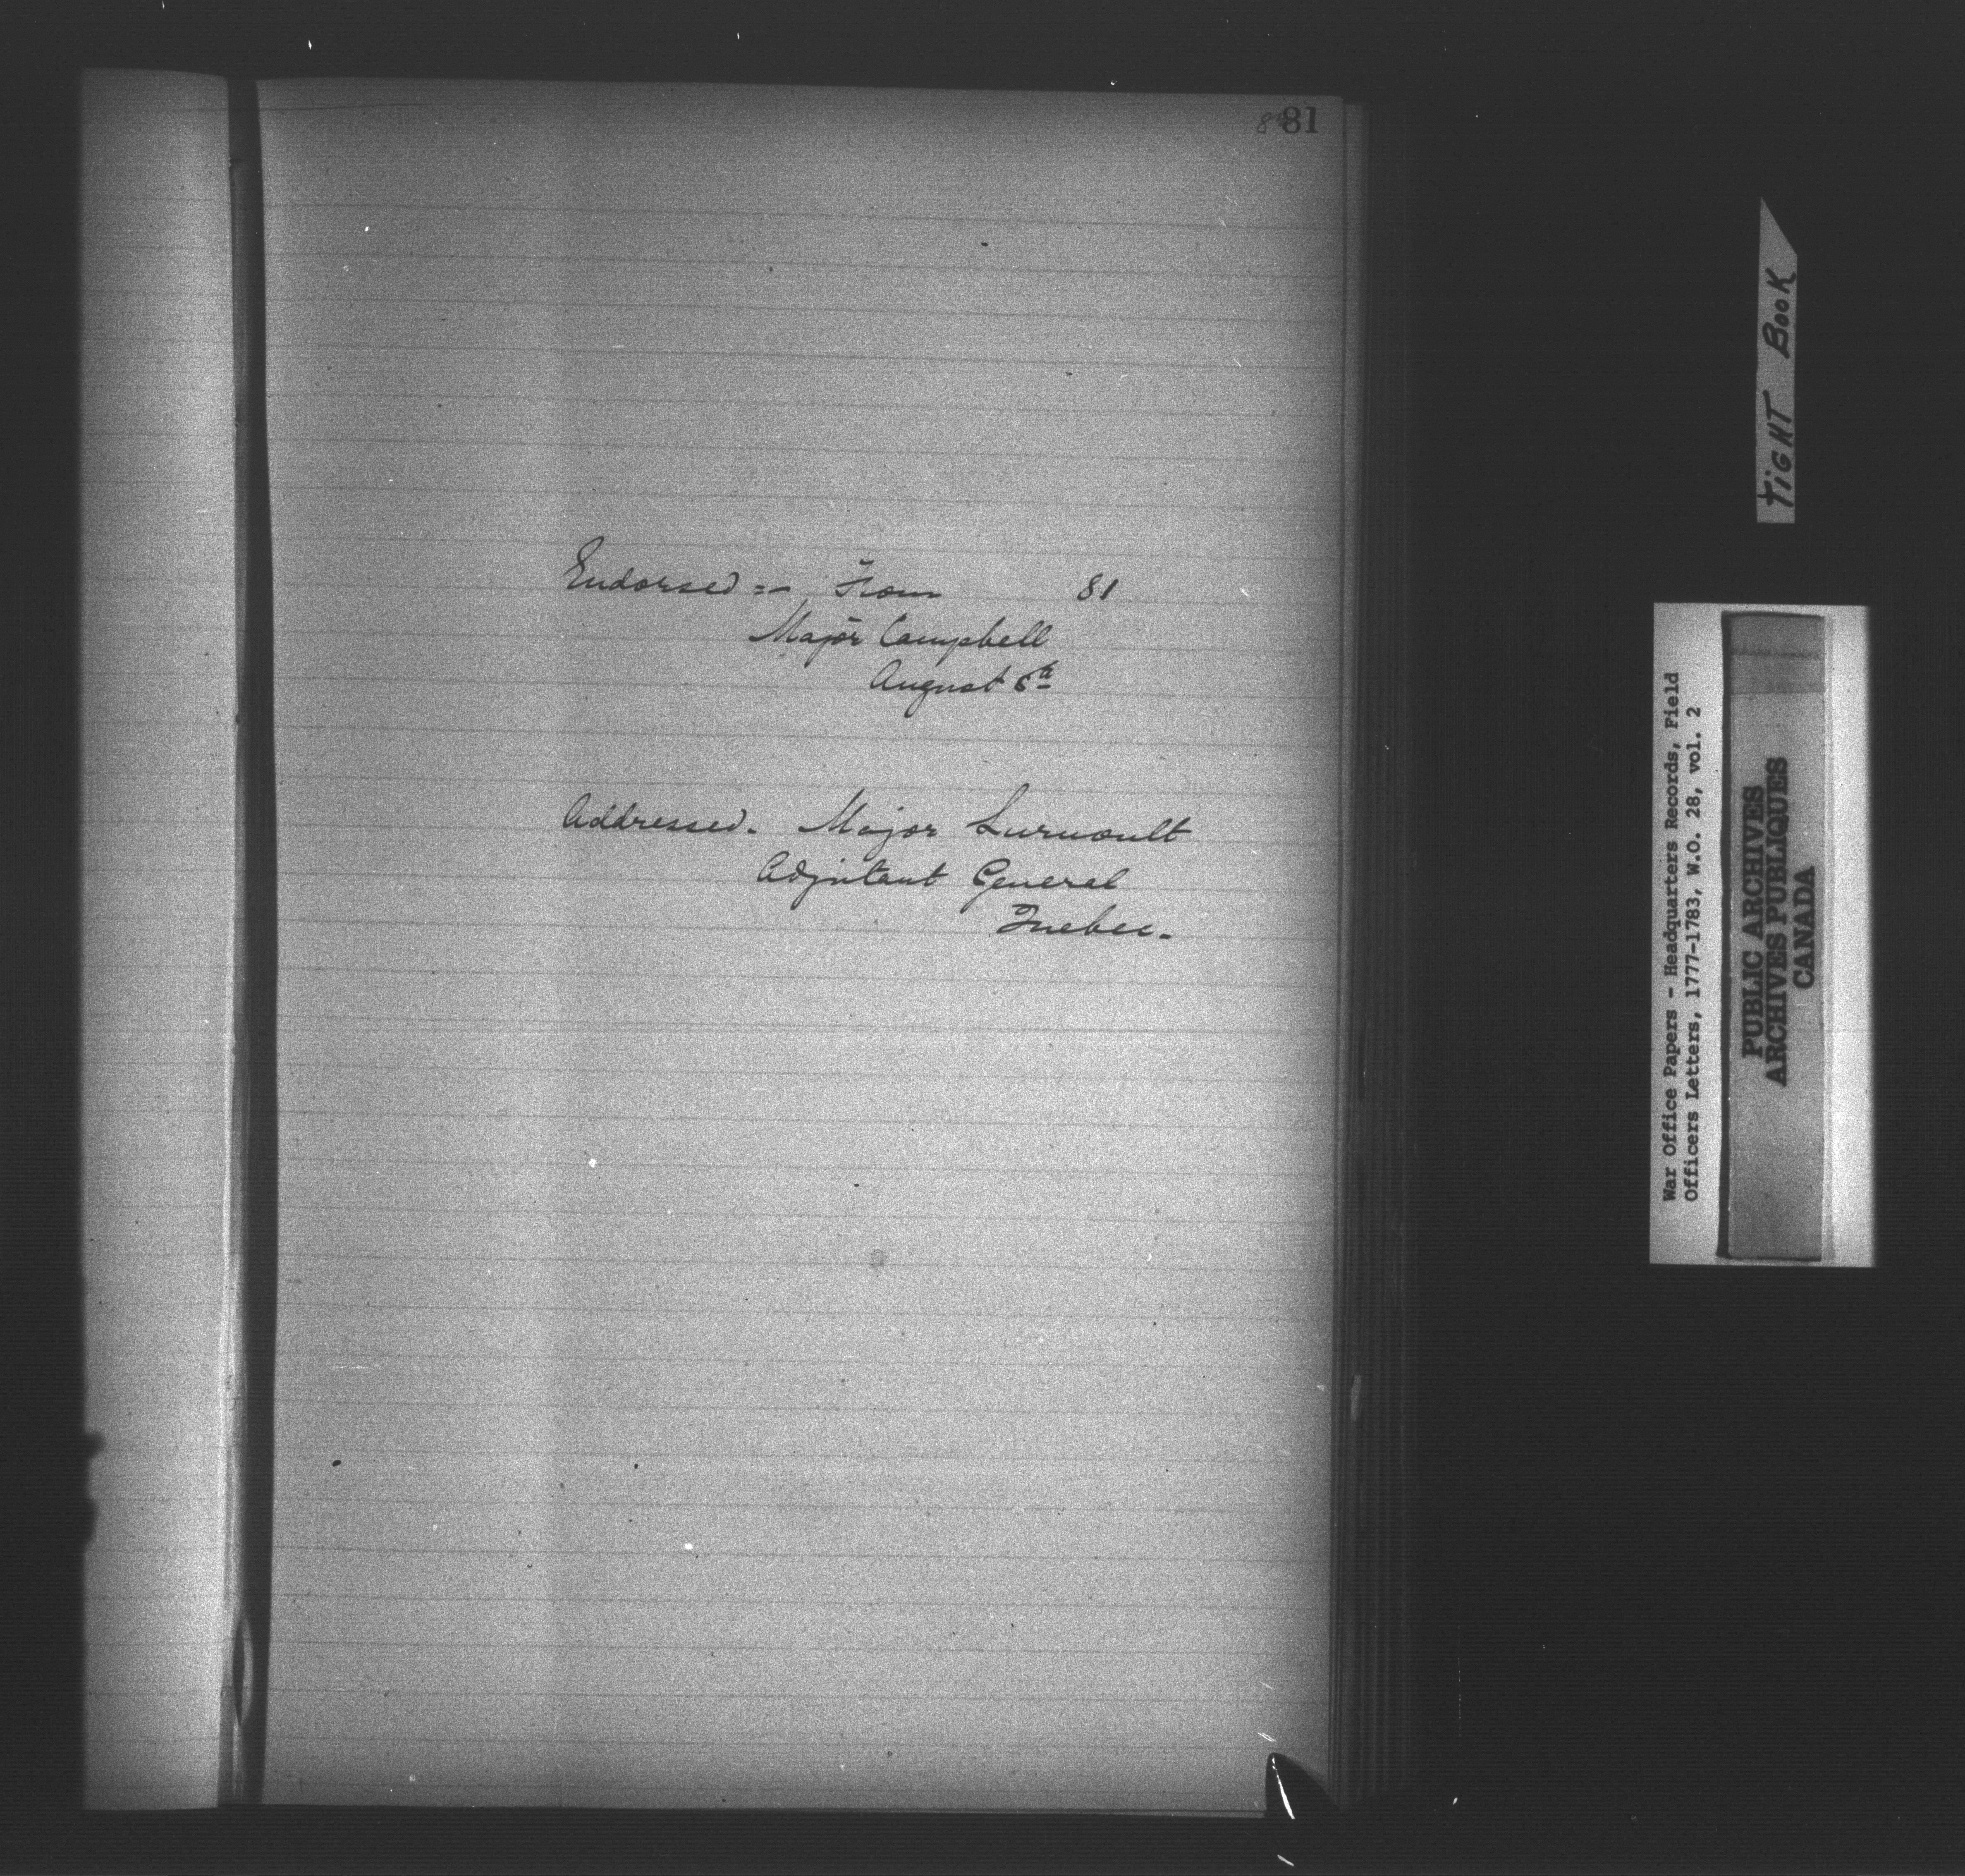 81
Endorsed :- From 81
Major Campbell
August 6th
Addressed. Major Lernoult
Adjutant General
Quebec.
TIGHT BOOK
War Office Papers - Headquarters Records, Field
Officers Letters, 1777-1783, W.O. 28, vol. 2
PUBLIC ARCHIVES
ARCHIVES PUBLIQUES
CANADA